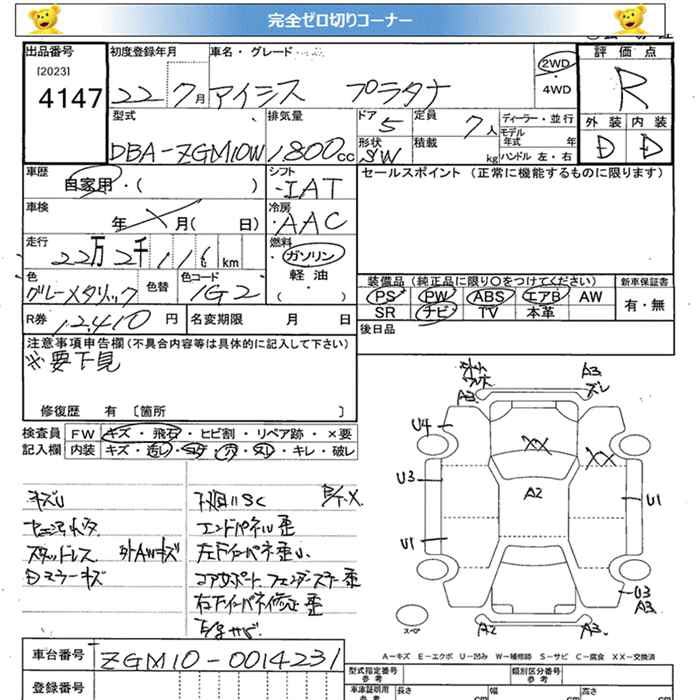 完全ゼロ切りコーナー
出品番号
[2023]
4147
初度登録年月
22 7月
車名・グレード
アイシス プラタナ
2WD
・
4WD
評価点
R
外装 内装
D D
型式
DBA-ZGM10W
排気量
1800cc
ドア
5
形状
SW
定員
7人
積載
kg
ディーラー・並行
モデル
年式 年
ハンドル 左・右
車歴
自家用・( )
シフト
IAT
セールスポイント (正常に機能するものに限ります)
車検
年 月( 日)
冷房
AAC
走行
22万2千116km
燃料
ガソリン
軽油
・
( )
色
グレーメタリック
色替
色コード
1G2
装備品(純正品に限り○をつけてください)
新車保証書
PS PW ABS エアB AW
SR ナビ TV 本革
有・無
R券 12,410円
名変期限 月 日
後日品
注意事項申告欄(不具合内容等は具体的に記入して下さい)
※要下見
修復歴 有 [箇所 ]
検査員
記入欄
FW キズ・飛石・ヒビ割・リペア跡・×要
内装 キズ・キレ・破レ
キズU
スタッドレス 外AWキズ
Dミラーキズ
下廻りSC
エンドパネル歪
左リヤインパネ歪
コアサポート フェンダステー歪
A3 A3
ズレ
U4
XX XX
U3
A2
U1
U1
U3
A3
スペア
A2 A3
A-キズ E-エクボ U-凹み W-補修跡 S-サビ C-腐食 XX-交換済
車台番号
ZGM10-0014231
登録番号
型式指定番号
参考
類別区分番号
参考
車庫証明用
参考
長さ
cm
幅
cm
高さ
cm